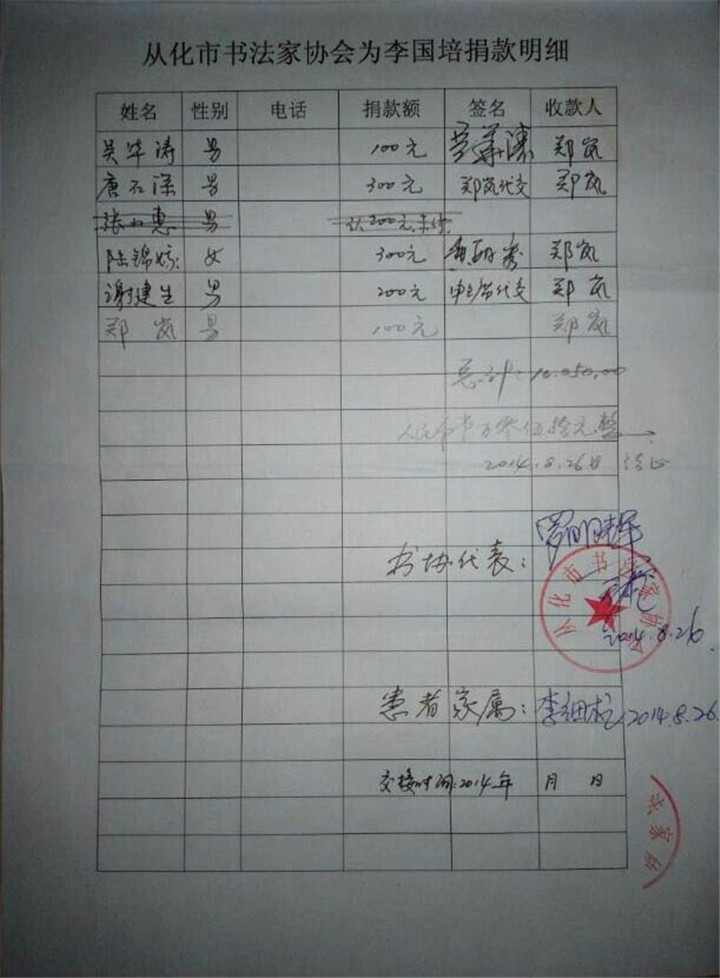 从化市书法家协会为李国培捐款明细
姓名 性别 电话 捐款额 签名 收款人
吴华涛 男 100元 郑岚
唐石深 男 300元 郑岚代交 郑岚
张 惠 男 认200元,未付
陆锦 女 300元 郑岚
谢建生 男 200元 代交 郑岚
郑岚 男 100元 郑岚
总计:10.050.00
人民币 万零伍拾元整
2014.8.26日
书协代表:
从化市书法家协会
2014.8.26
患者家属: 2014.8.26
交接时间:2014年 月 日
法家协